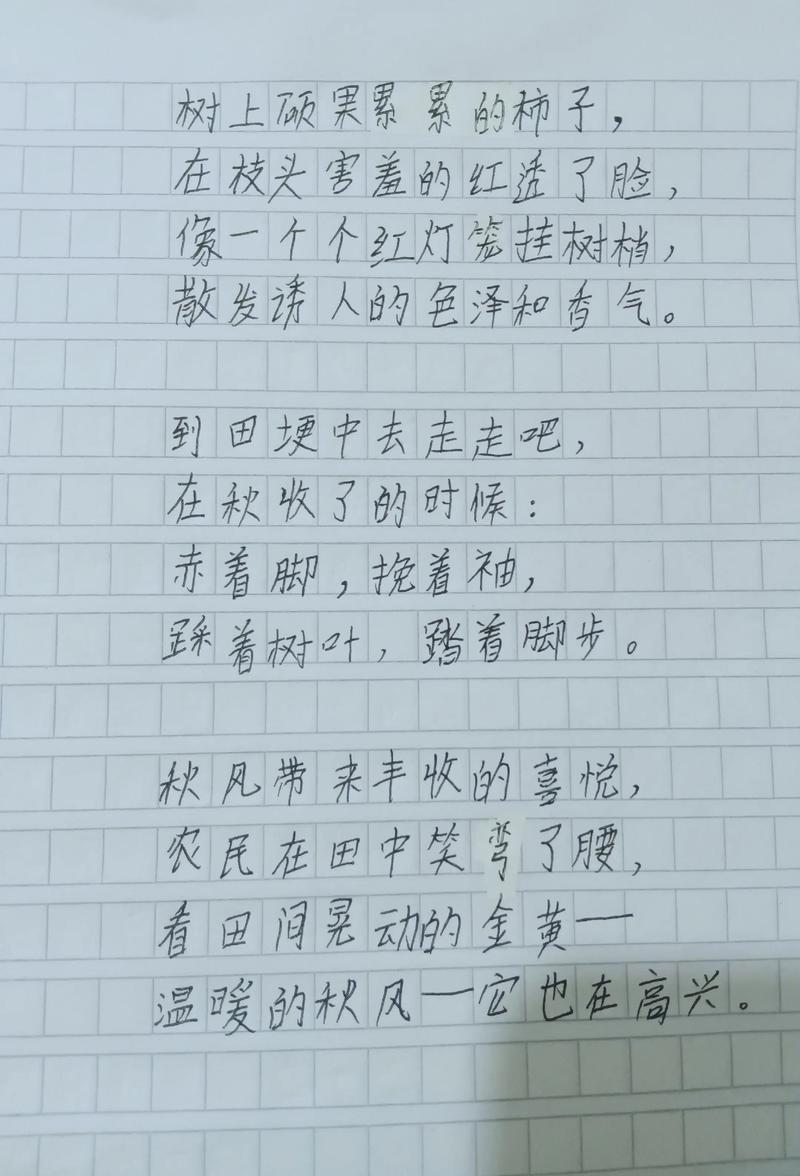 树上硕果累累的柿子，
在枝头害羞的红透了脸，
像一个个红灯笼挂树梢，
散发诱人的色泽和香气。
到田埂中去走走吧，
在秋收了的时候：
赤着脚，挽着袖，
踩着树叶，踏着脚步。
秋风带来丰收的喜悦，
农民在田中笑弯了腰，
看田间晃动的金黄——
温暖的秋风——它也在高兴。